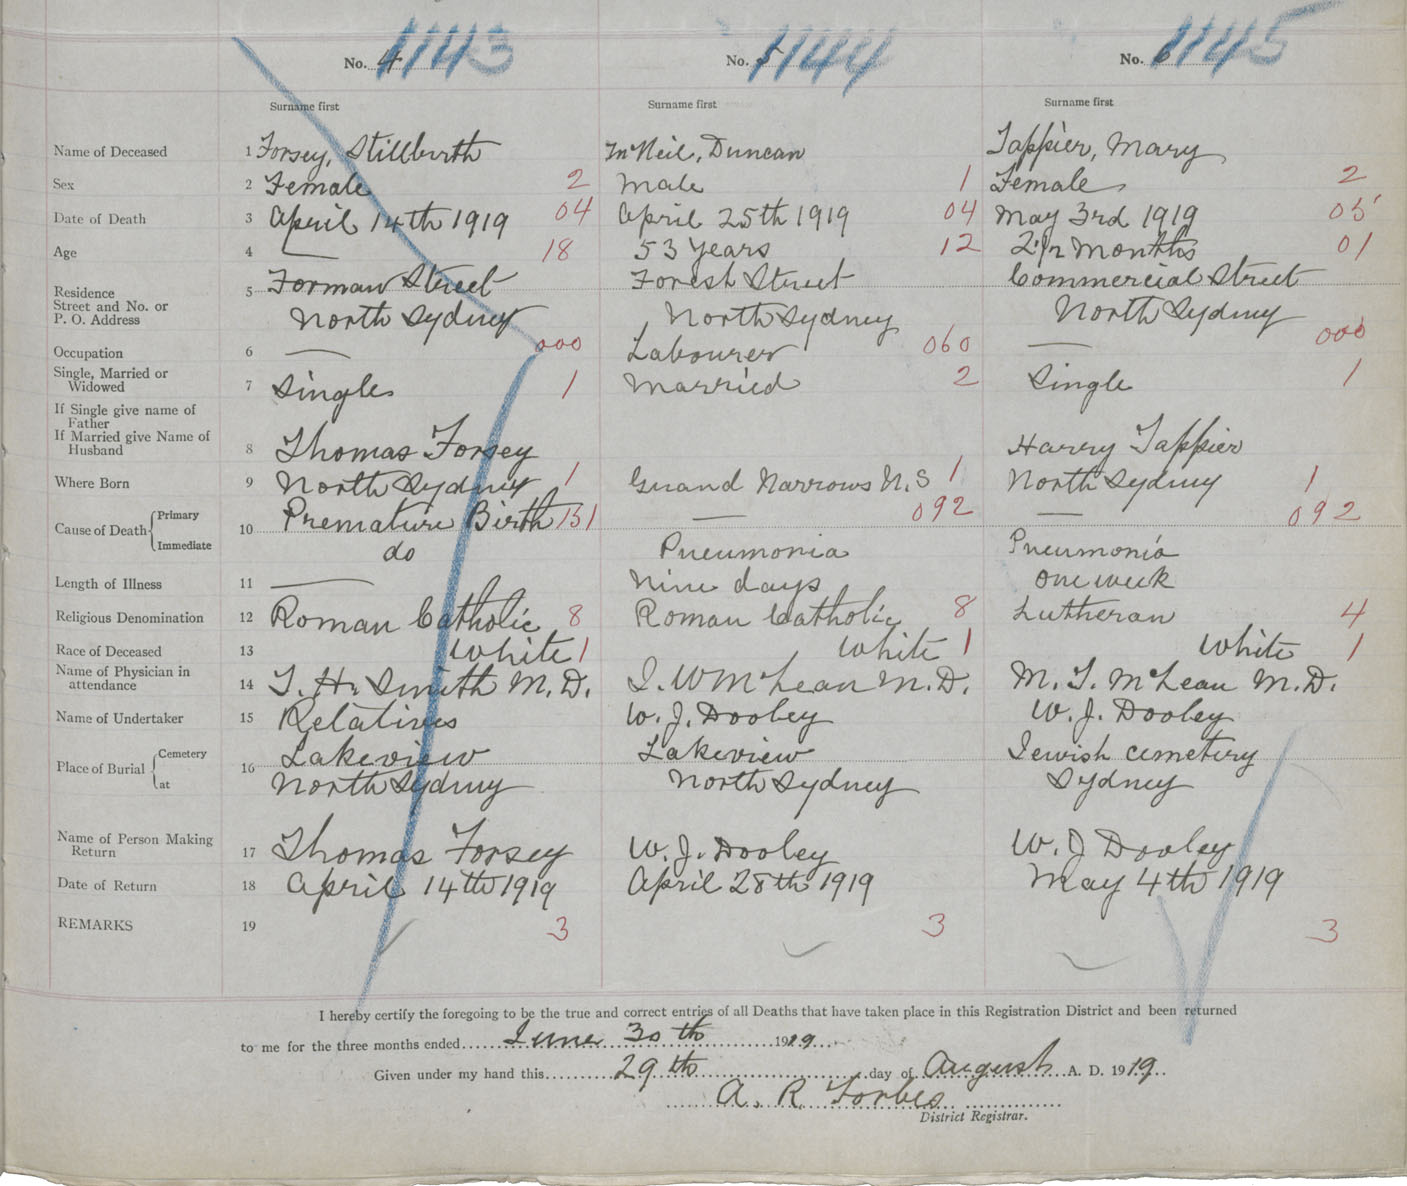 No. 4 1143 No. 5 1144 No. 6 1145
Surname first Surname first Surname first
Name of Deceased 1 Forsey, Stillbirth McNeil, Duncan Tappier, Mary
Sex 2 Female 2 Male 1 Female 2
Date of Death 3 April 14th 1919 04 April 25th 1919 04 May 3rd 1919 05
Age 4 — 18 53 Years 12 2 1/2 Months 01
Residence
Street and No. or
P. O. Address 5 Forman Street Forest Street Commercial Street
North Sydney North Sydney North Sydney
Occupation 6 — 000 Labourer 060 — 000
Single, Married or
Widowed 7 Single 1 Married 2 Single 1
If Single give name of
Father
If Married give Name of
Husband 8 Thomas Forsey Harry Tappier
Where Born 9 North Sydney 1 Grand Narrows N.S 1 North Sydney 1
Cause of Death Primary 10 Premature Birth 151 — 092 — 092
Immediate do Pneumonia Pneumonia
Length of Illness 11 — Nine days One week
Religious Denomination 12 Roman Catholic 8 Roman Catholic 8 Lutheran 4
Race of Deceased 13 White 1 White 1 White 1
Name of Physician in
attendance 14 T. H. Smith M.D. J. W McLean M.D. M. T. McLean M.D.
Name of Undertaker 15 Relatives W. J. Dooley W. J. Dooley
Place of Burial Cemetery 16 Lakeview Lakeview Jewish cemetery
at North Sydney North Sydney Sydney
Name of Person Making
Return 17 Thomas Forsey W. J. Dooley W. J Dooley
Date of Return 18 April 14th 1919 April 28th 1919 May 4th 1919
REMARKS 19 3 3 3
I hereby certify the foregoing to be the true and correct entries of all Deaths that have taken place in this Registration District and been returned
to me for the three months ended June 30th 1919
Given under my hand this 29th day of August A. D. 1919
A. R. Forbes
District Registrar.